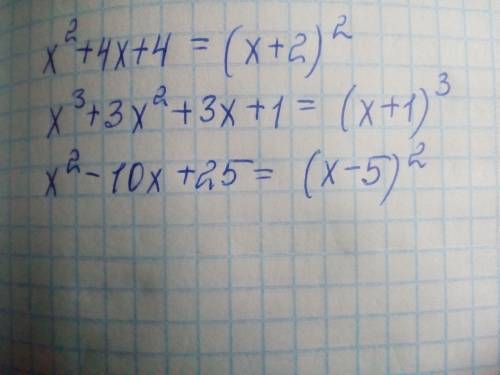 x² + 4x + 4 = (x + 2)²
x³ + 3x² + 3x + 1 = (x + 1)³
x² - 10x + 25 = (x - 5)²